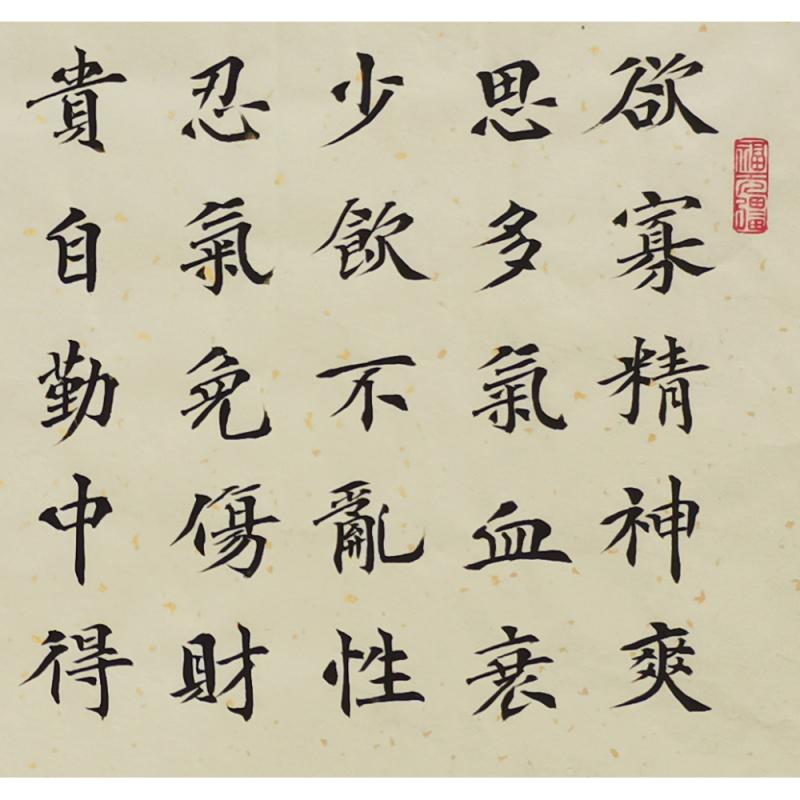 福无疆
欲寡精神爽
思多氣血衰
少飲不亂性
忍氣免傷財
貴自勤中得